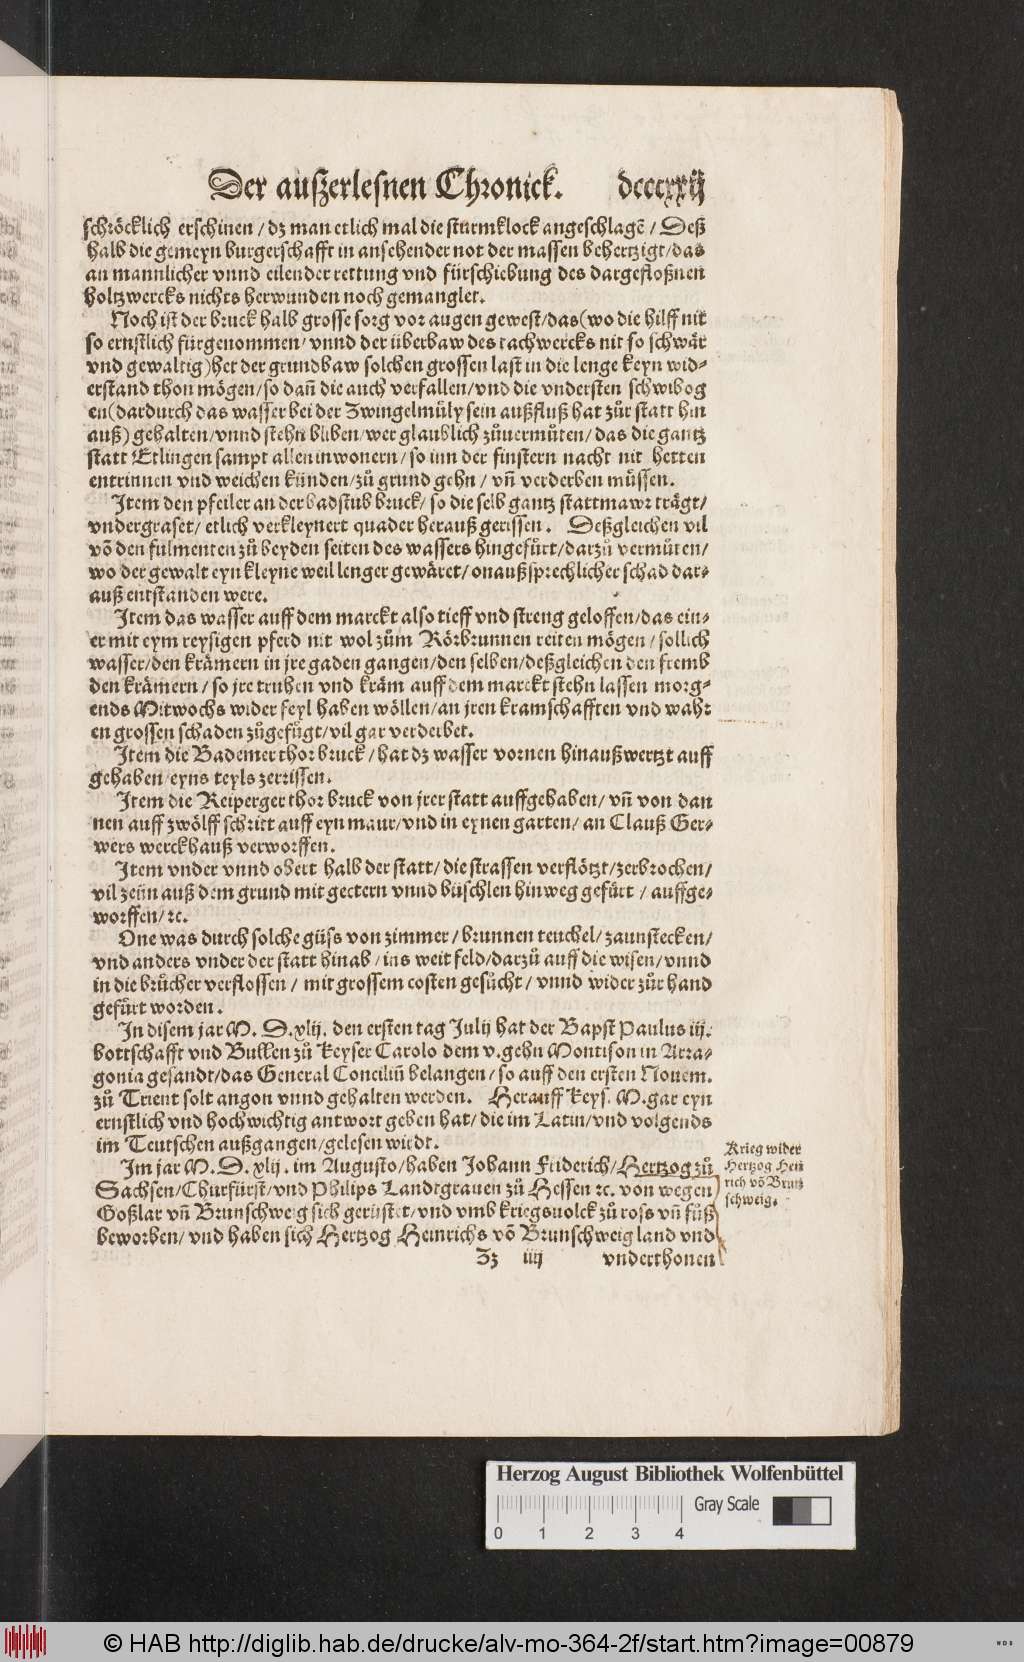 Der außerlesnen Chronick. dccccxxij
schröcklich erschinen / dz man etlich mal die sturmklock angeschlagē / Deß
halb die gemeyn burgerschafft in ansehender not der massen behertzigt / das
an mannlicher vnnd eilender rettung vnd fürschiebung des dargefloßnen
holtzwercks nichts herwunden noch gemanglet.
Noch ist der bruck halb grosse sorg vor augen gewest / das (wo die hilff nit
so ernstlich fürgenommen / vnnd der überbaw des tachwercks nit so schwär
vnd gewaltig) het der grundbaw solchen grossen last in die lenge keyn wid-
erstand thon mögen / so dañ die auch verfallen / vnd die vndersten schwibog
en (dardurch das wasser bei der Zwingelmüly sein außfluß hat zůr statt hin
auß) gehalten / vnnd stehn bliben / wer glaublich zůuermůten / das die gantz
statt Etlingen sampt allen inwonern / so inn der finstern nacht nit hetten
entrinnen vnd weichen künden / zů grund gehn / vñ verderben müssen.
Item den pfeiler an der badstub bruck / so die selb gantz stattmawr trägt /
vndergraset / etlich verkleynert quader herauß gerissen. Deßgleichen vil
võ den fulmenten zů beyden seiten des wassers hingefůrt / darzů vermůten /
wo der gewalt eyn kleyne weil lenger gewäret / onaußsprechlicher schad dar-
auß entstanden were.
Item das wasser auff dem marckt also tieff vnd streng geloffen / das ein-
er mit eym reysigen pferd nit wol zům Rörbrunnen reiten mögen / sollich
wasser / den krämern in jre gaden gangen / den selben / deßgleichen den fremb
den krämern / so jre truhen vnd kräm auff dem marckt stehn lassen morg-
ends Mitwochs wider feyl haben wöllen / an jren kramschafften vnd wahr
en grossen schaden zůgefůgt / vil gar verderbet.
Item die Bademer thor bruck / hat dz wasser vornen hinaußwertzt auff
gehaben / eyns teyls zerrissen.
Item die Reiperger thor bruck von jrer statt auffgehaben / vñ von dan
nen auff zwölff schritt auff eyn maur / vnd in eynen garten / an Clauß Ger-
wers werckhauß verworffen.
Item vnder vnnd obert halb der statt / die strassen verflötzt / zerbrochen /
vil zeün auß dem grund mit gectern vnnd büschlen hinweg gefürt / auffge-
worffen / ꝛc.
One was durch solche güss von zimmer / brunnen teuchel / zaunstecken /
vnd anders vnder der statt hinab / ins weit feld / darzů auff die wisen / vnnd
in die brůcher verflossen / mit grossem costen gesůcht / vnnd wider zůr hand
gefůrt worden.
In disem jar M. D. xlij. den ersten tag Julij hat der Bapst Paulus iij.
bottschafft vnd Bullen zů Keyser Carolo dem v. gehn Montison in Arra-
gonia gesandt / das General Conciliũ belangen / so auff den ersten Nouem.
zů Trient solt angon vnnd gehalten werden. Herauff Keys. M. gar eyn
ernstlich vnd hochwichtig antwort geben hat / die im Latin / vnd volgends
im Teutschen außgangen / gelesen wirdt.
Im jar M. D. xlij. im Augusto / haben Johann Friderich / Hertzog zů
Sachsen / Churfürst / vnd Philips Landtgrauen zů Hessen ꝛc. von wegen
Goßlar vñ Brunschweig sich gerüstet / vnd vmb kriegsuolck zů ross vñ fůß
beworben / vnd haben sich Hertzog Heinrichs võ Brunschweig land vnd
Krieg wider
Hertzog Hein
rich võ Brun
schweig.
Zz iiij vnderthonen
Herzog August Bibliothek Wolfenbüttel
Gray Scale
0 1 2 3 4
© HAB http://diglib.hab.de/drucke/alv-mo-364-2f/start.htm?image=00879